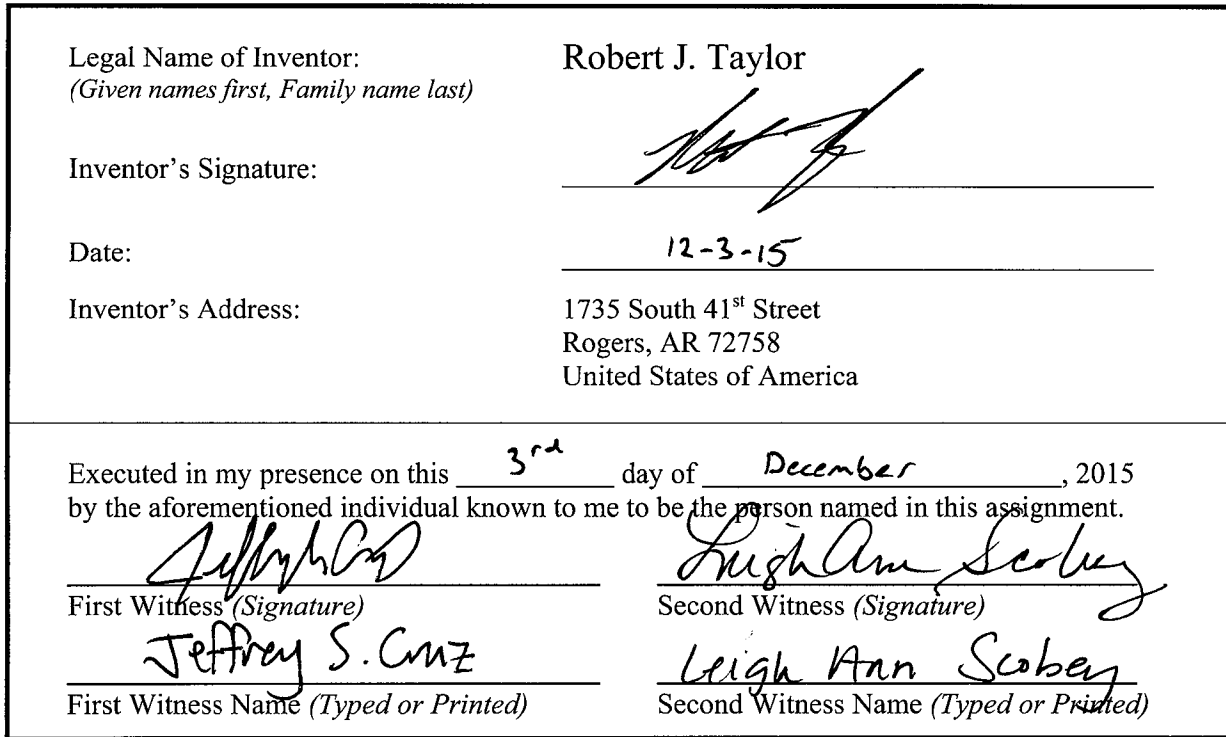 Legal Name of Inventor: Robert J. Taylor
(Given names first, Family name last)
Inventor's Signature:
Date: 12-3-15
Inventor's Address: 1735 South 41st Street
Rogers, AR 72758
United States of America
Executed in my presence on this 3rd day of December, 2015
by the aforementioned individual known to me to be the person named in this assignment.
Leigh Ann Scobey
First Witness (Signature) Second Witness (Signature)
Jeffrey S. Cruz Leigh Ann Scobey
First Witness Name (Typed or Printed) Second Witness Name (Typed or Printed)